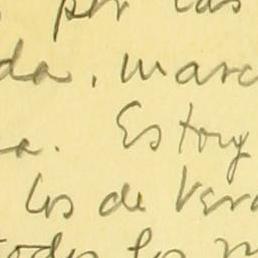 por las
da, marc
a. Estoy
los de Vera
todos los m